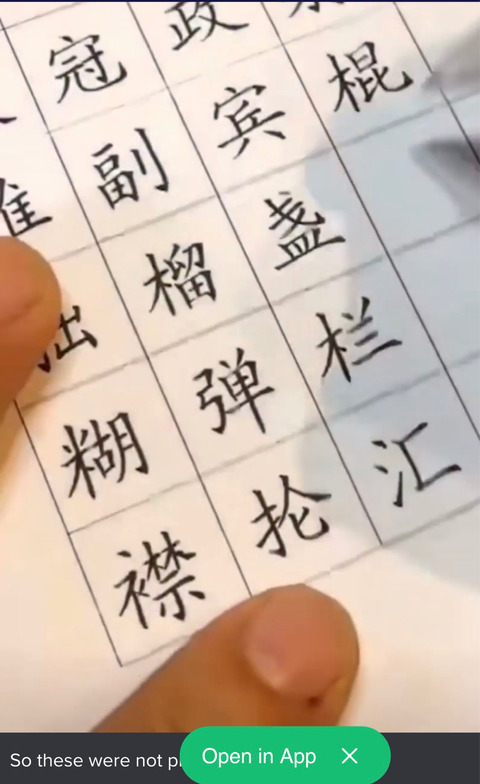 冠 政
副 宾 棍
榴 盏
糊 弹 栏
襟 抡 汇
So these were not
Open in App ×